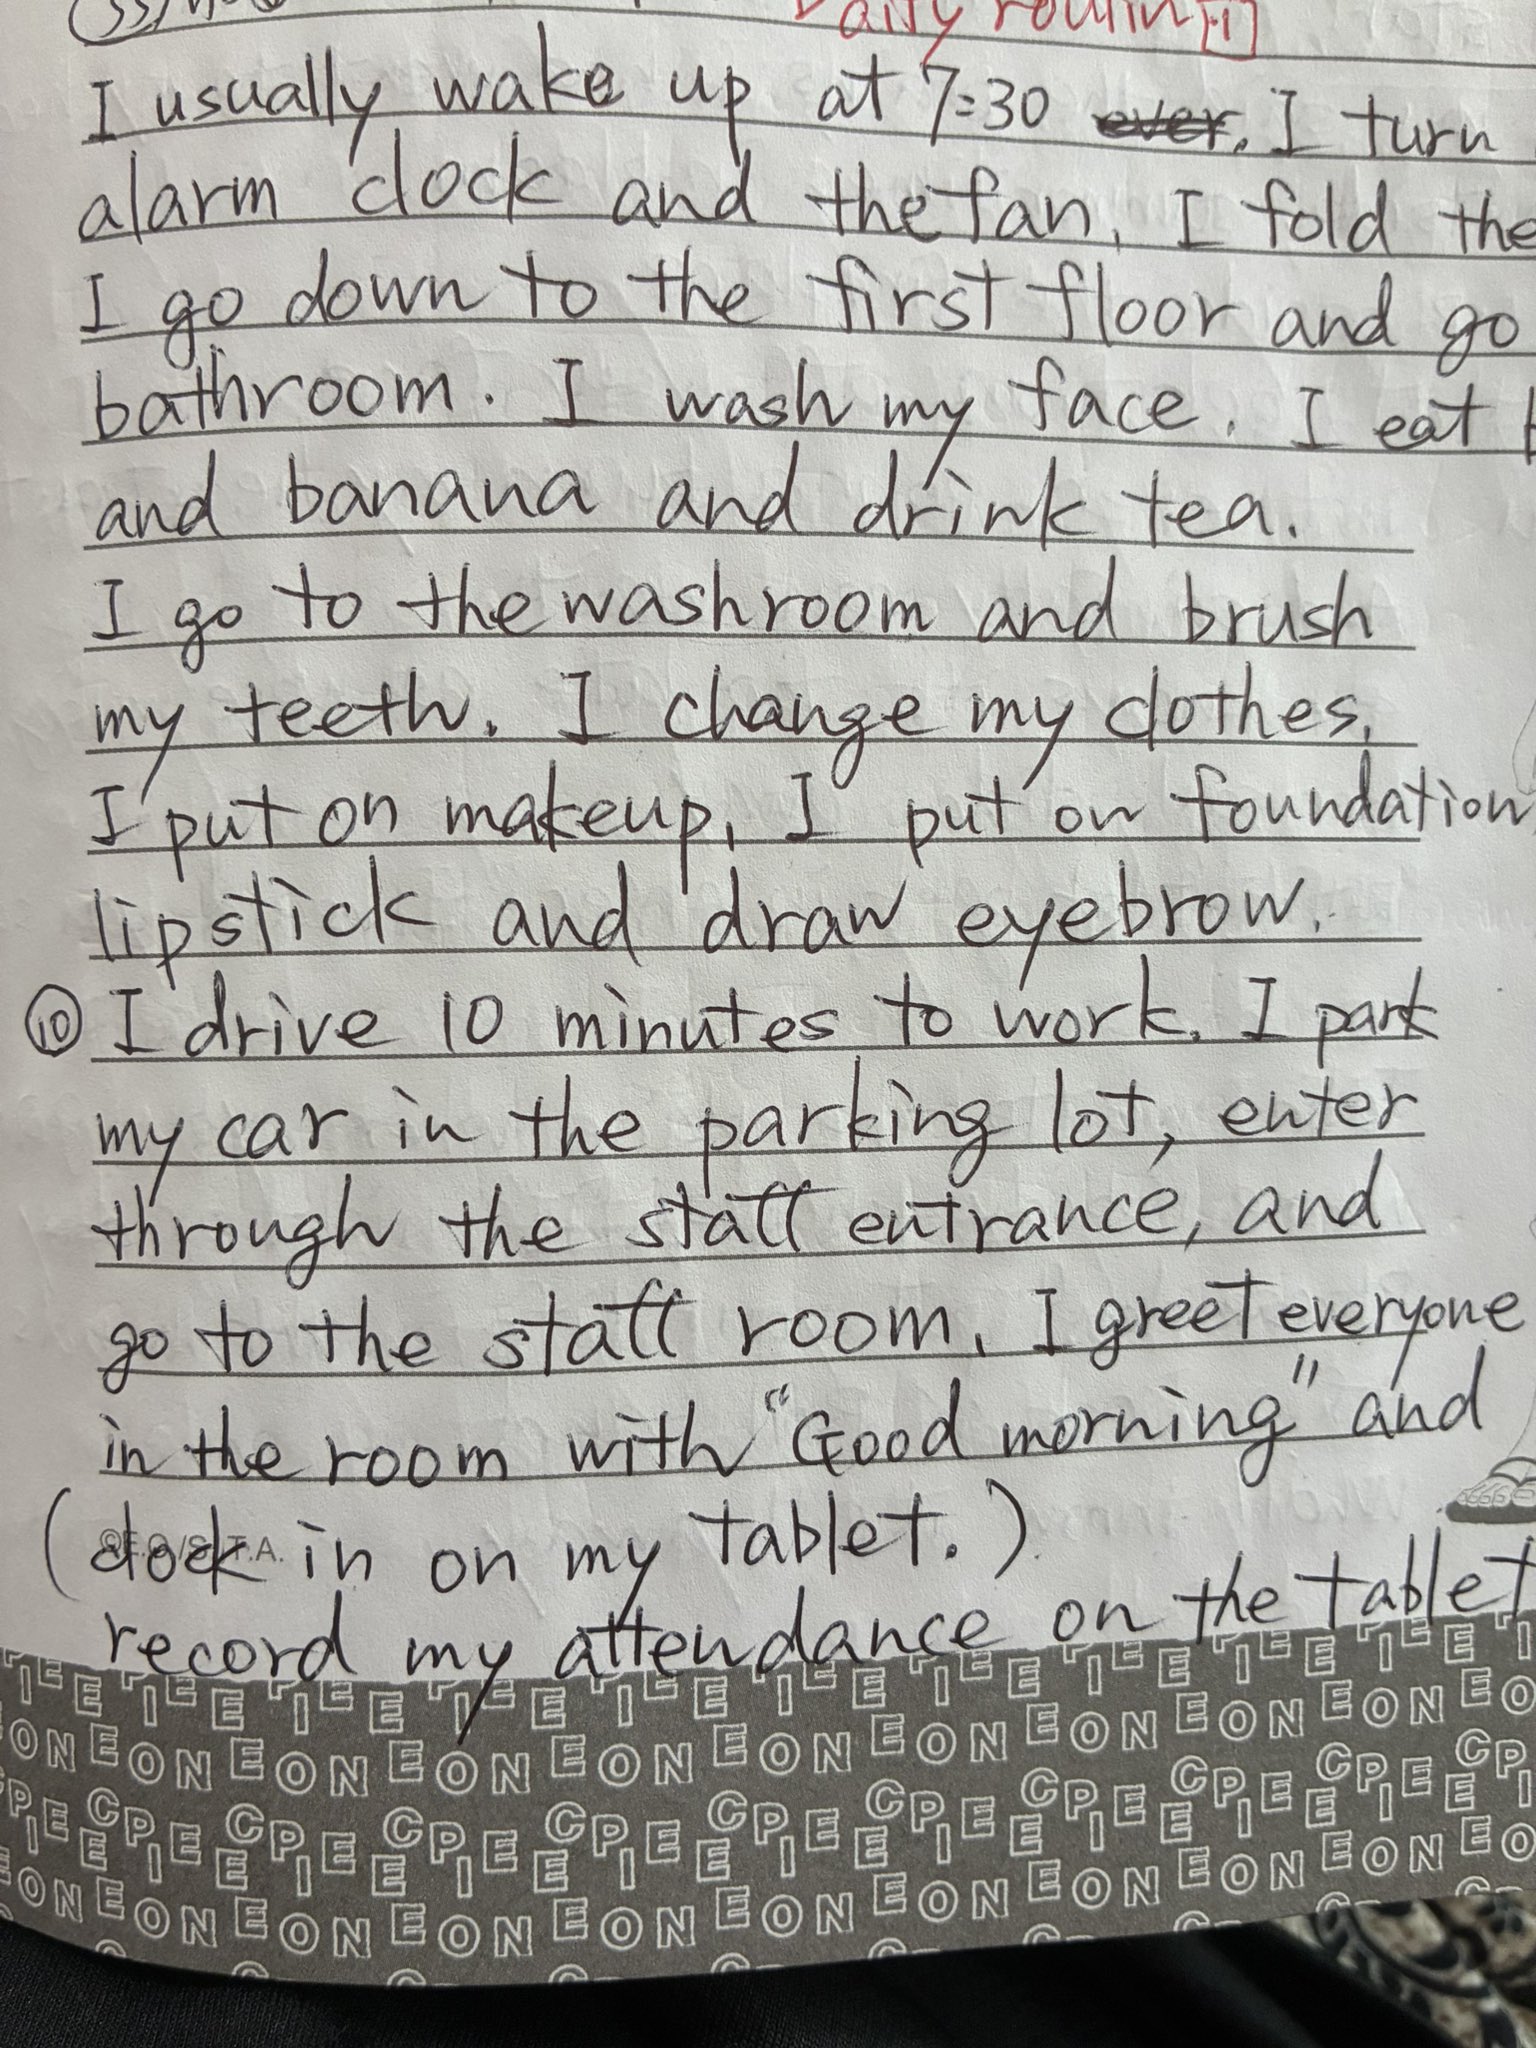 Daily routin 1
I usually wake up at 7:30 ever. I turn
alarm clock and the fan. I fold the
I go down to the first floor and go
bathroom. I wash my face. I eat
and banana and drink tea.
I go to the washroom and brush
my teeth. I change my clothes.
I put on makeup. I put on foundation
lipstick and draw eyebrow.
10 I drive 10 minutes to work. I park
my car in the parking lot, enter
through the staff entrance, and
go to the staff room. I greet everyone
in the room with "Good morning" and
(clock in on my tablet.)
record my attendance on the tablet